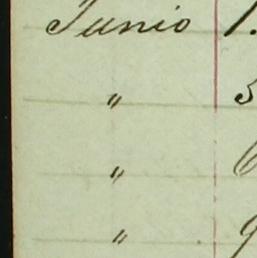 Junio 1.
" 5
" 6
" 9